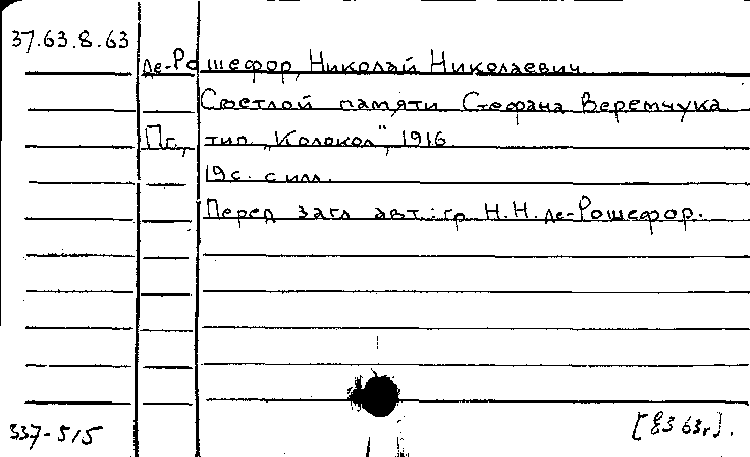 37.63.8.63
Де-Рошефор, Николай Николаевич
Светлой памяти Стефана Веремчука
Пг., тип. „Колокол", 1916.
19 с. с илл.
Перед загл. авт.: гр. Н.Н. де-Рошефор.
337-515